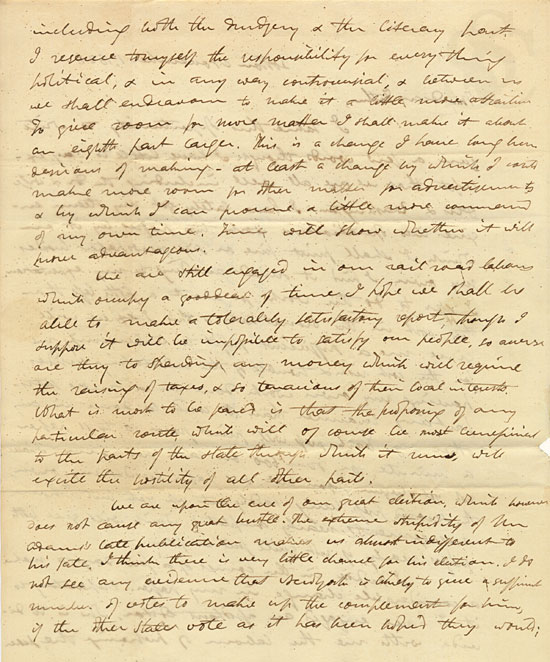 including both the drudgery & the literary part.
I reserve to myself the responsibility for every thing
political, & in any way controversial, & between us
we shall endeavour to make it a little more attractive
To give room for more matter I shall make it about
an eighth part larger. This is a change I have long been
desirous of making - at least a change by which I could
make more room for other matter for advertisements
& by which I can procure a little more command
of my own time. Time will show whether it will
prove advantageous.
We are still engaged in our rail road labours
which occupy a good deal of time. I hope we shall be
able to make a tolerably satisfactory report, though I
suppose it will be impossible to satisfy our people, so averse
are they to spending any money which will require
the raising of taxes, & so tenacious of their local interests.
What is most to be feared is that the proposing of any
particular route, which will of course be most beneficial
to the parts of the state through which it runs, will
excite the hostility of all other parts.
We are upon the eve of our great election, which however
does not cause any great bustle. The extreme stupidity of Mr
Adams's late publication makes us almost indifferent to
his fate. I think there is very little chance for his election. I do
not see any evidence that New York is likely to give a sufficient
number of votes to make up the complement for him,
if the other States vote as it has been they would;